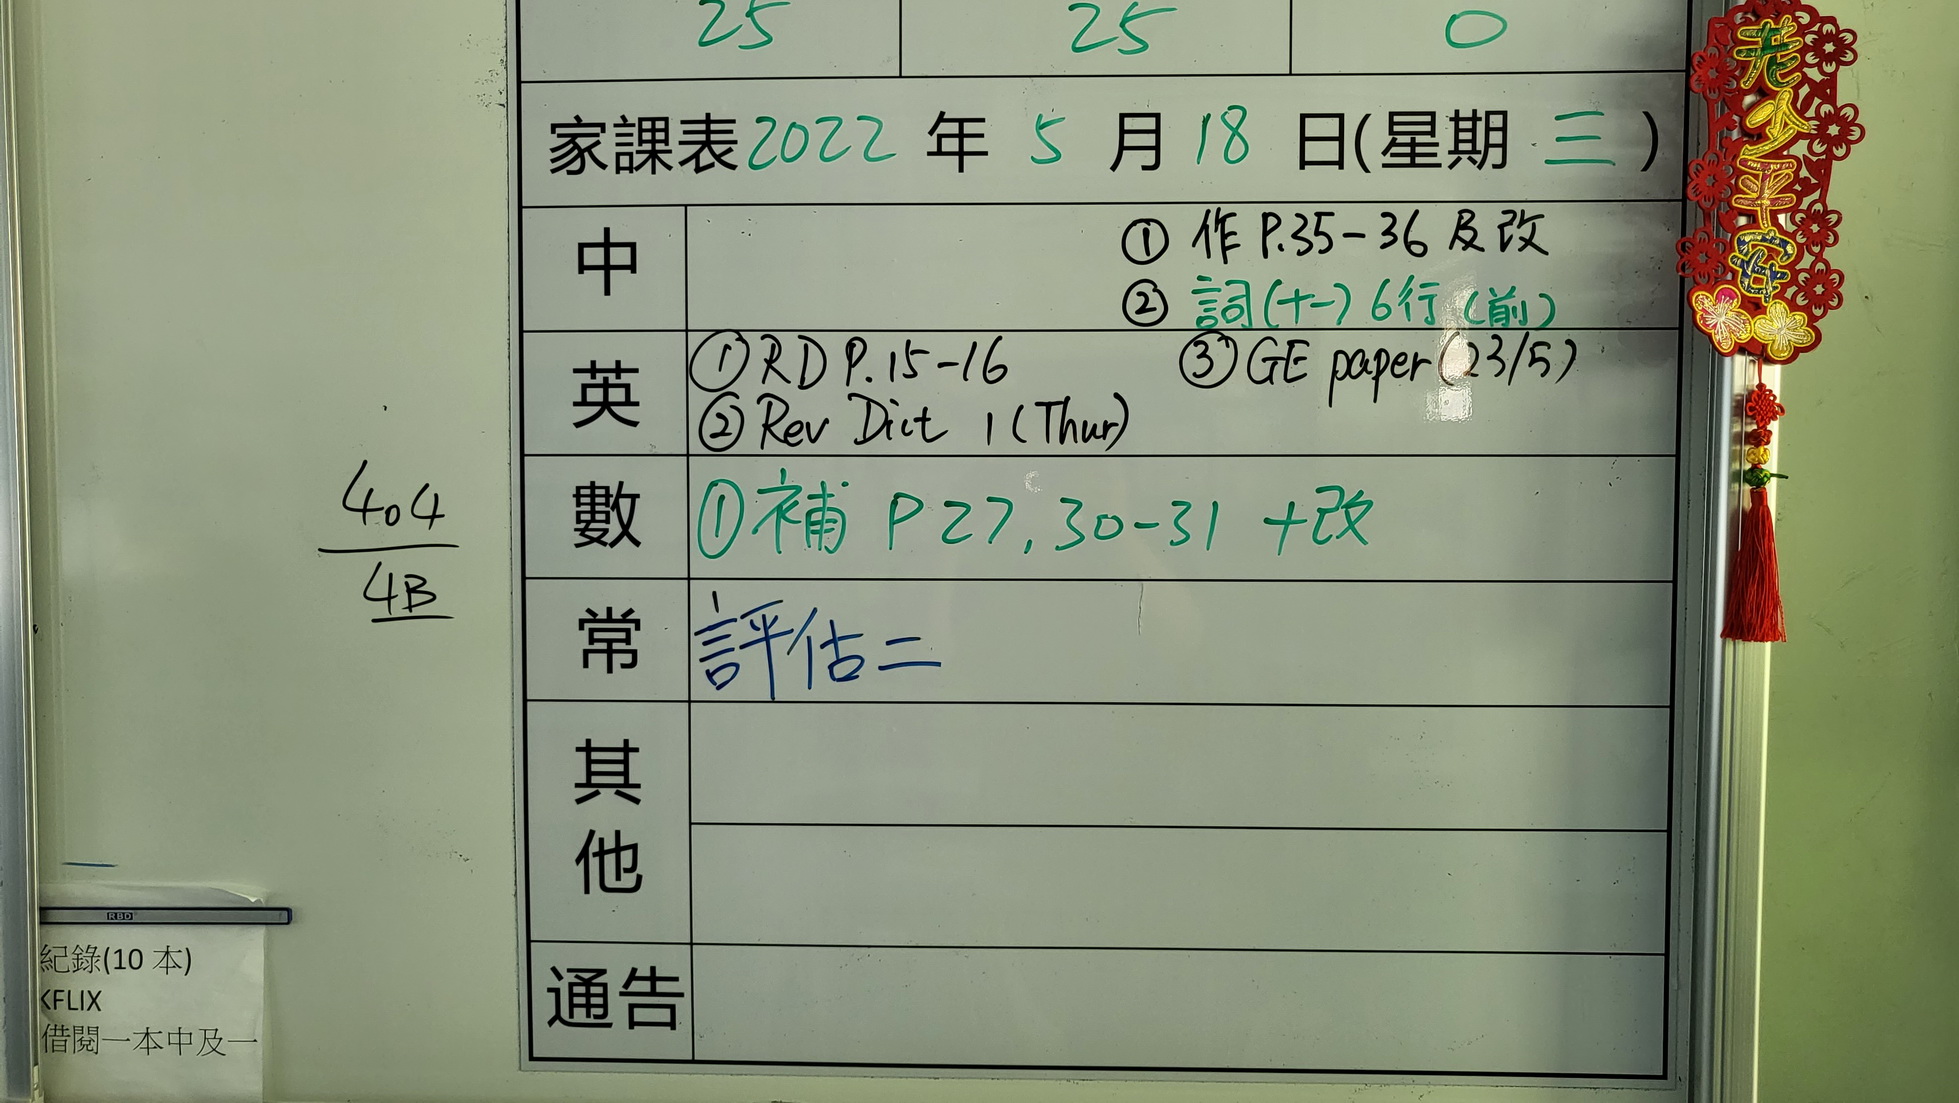 25 25 0
家課表2022 年 5 月 18 日(星期 三 )
中
① 作 P.35-36 及改
② 詞(十一) 6行 (前)
英
① RD P.15-16 ③ GE paper (23/5)
② Rev Dict 1 (Thur)
數 ① 補 P 27, 30-31 +改
常 評估二
其
他
通告
404
4B
RBD
紀錄(10 本)
KFLIX
借閱一本中及一
老少平安